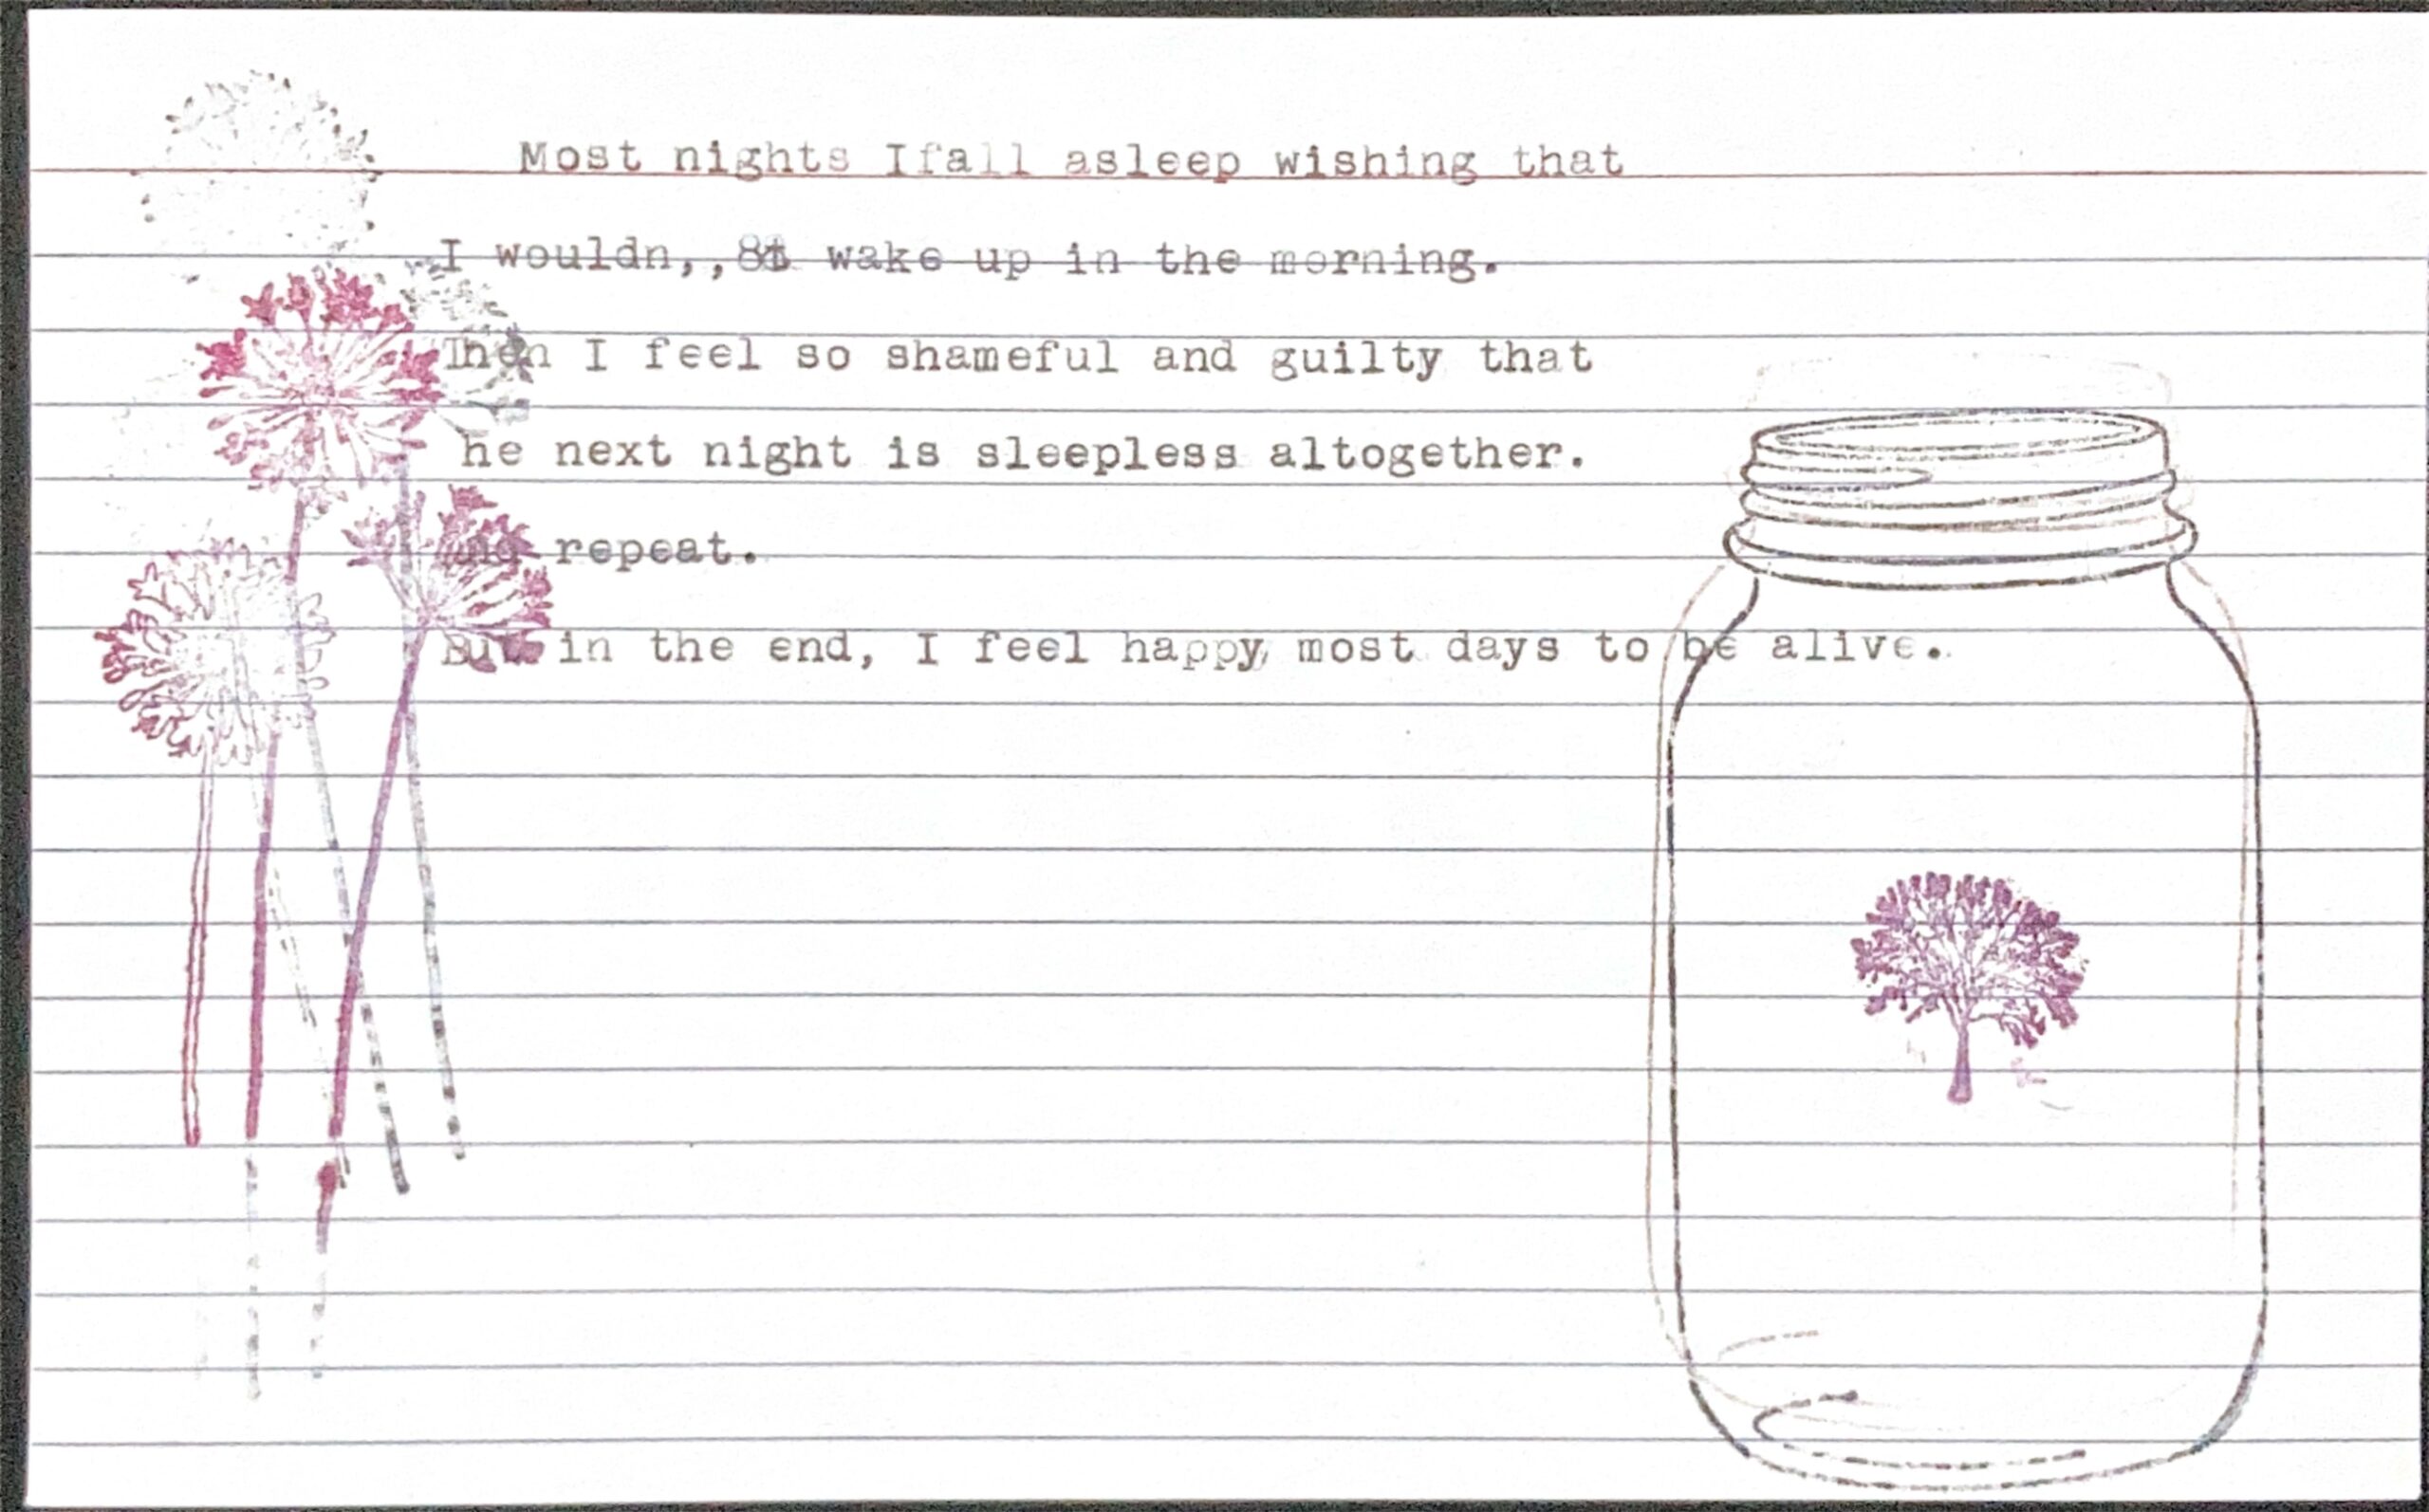 Most nights Ifall asleep wishing that
I wouldn,,8t wake up in the morning.
Then I feel so shameful and guilty that
he next night is sleepless altogether.
and repeat.
But in the end, I feel happy, most days to be alive.